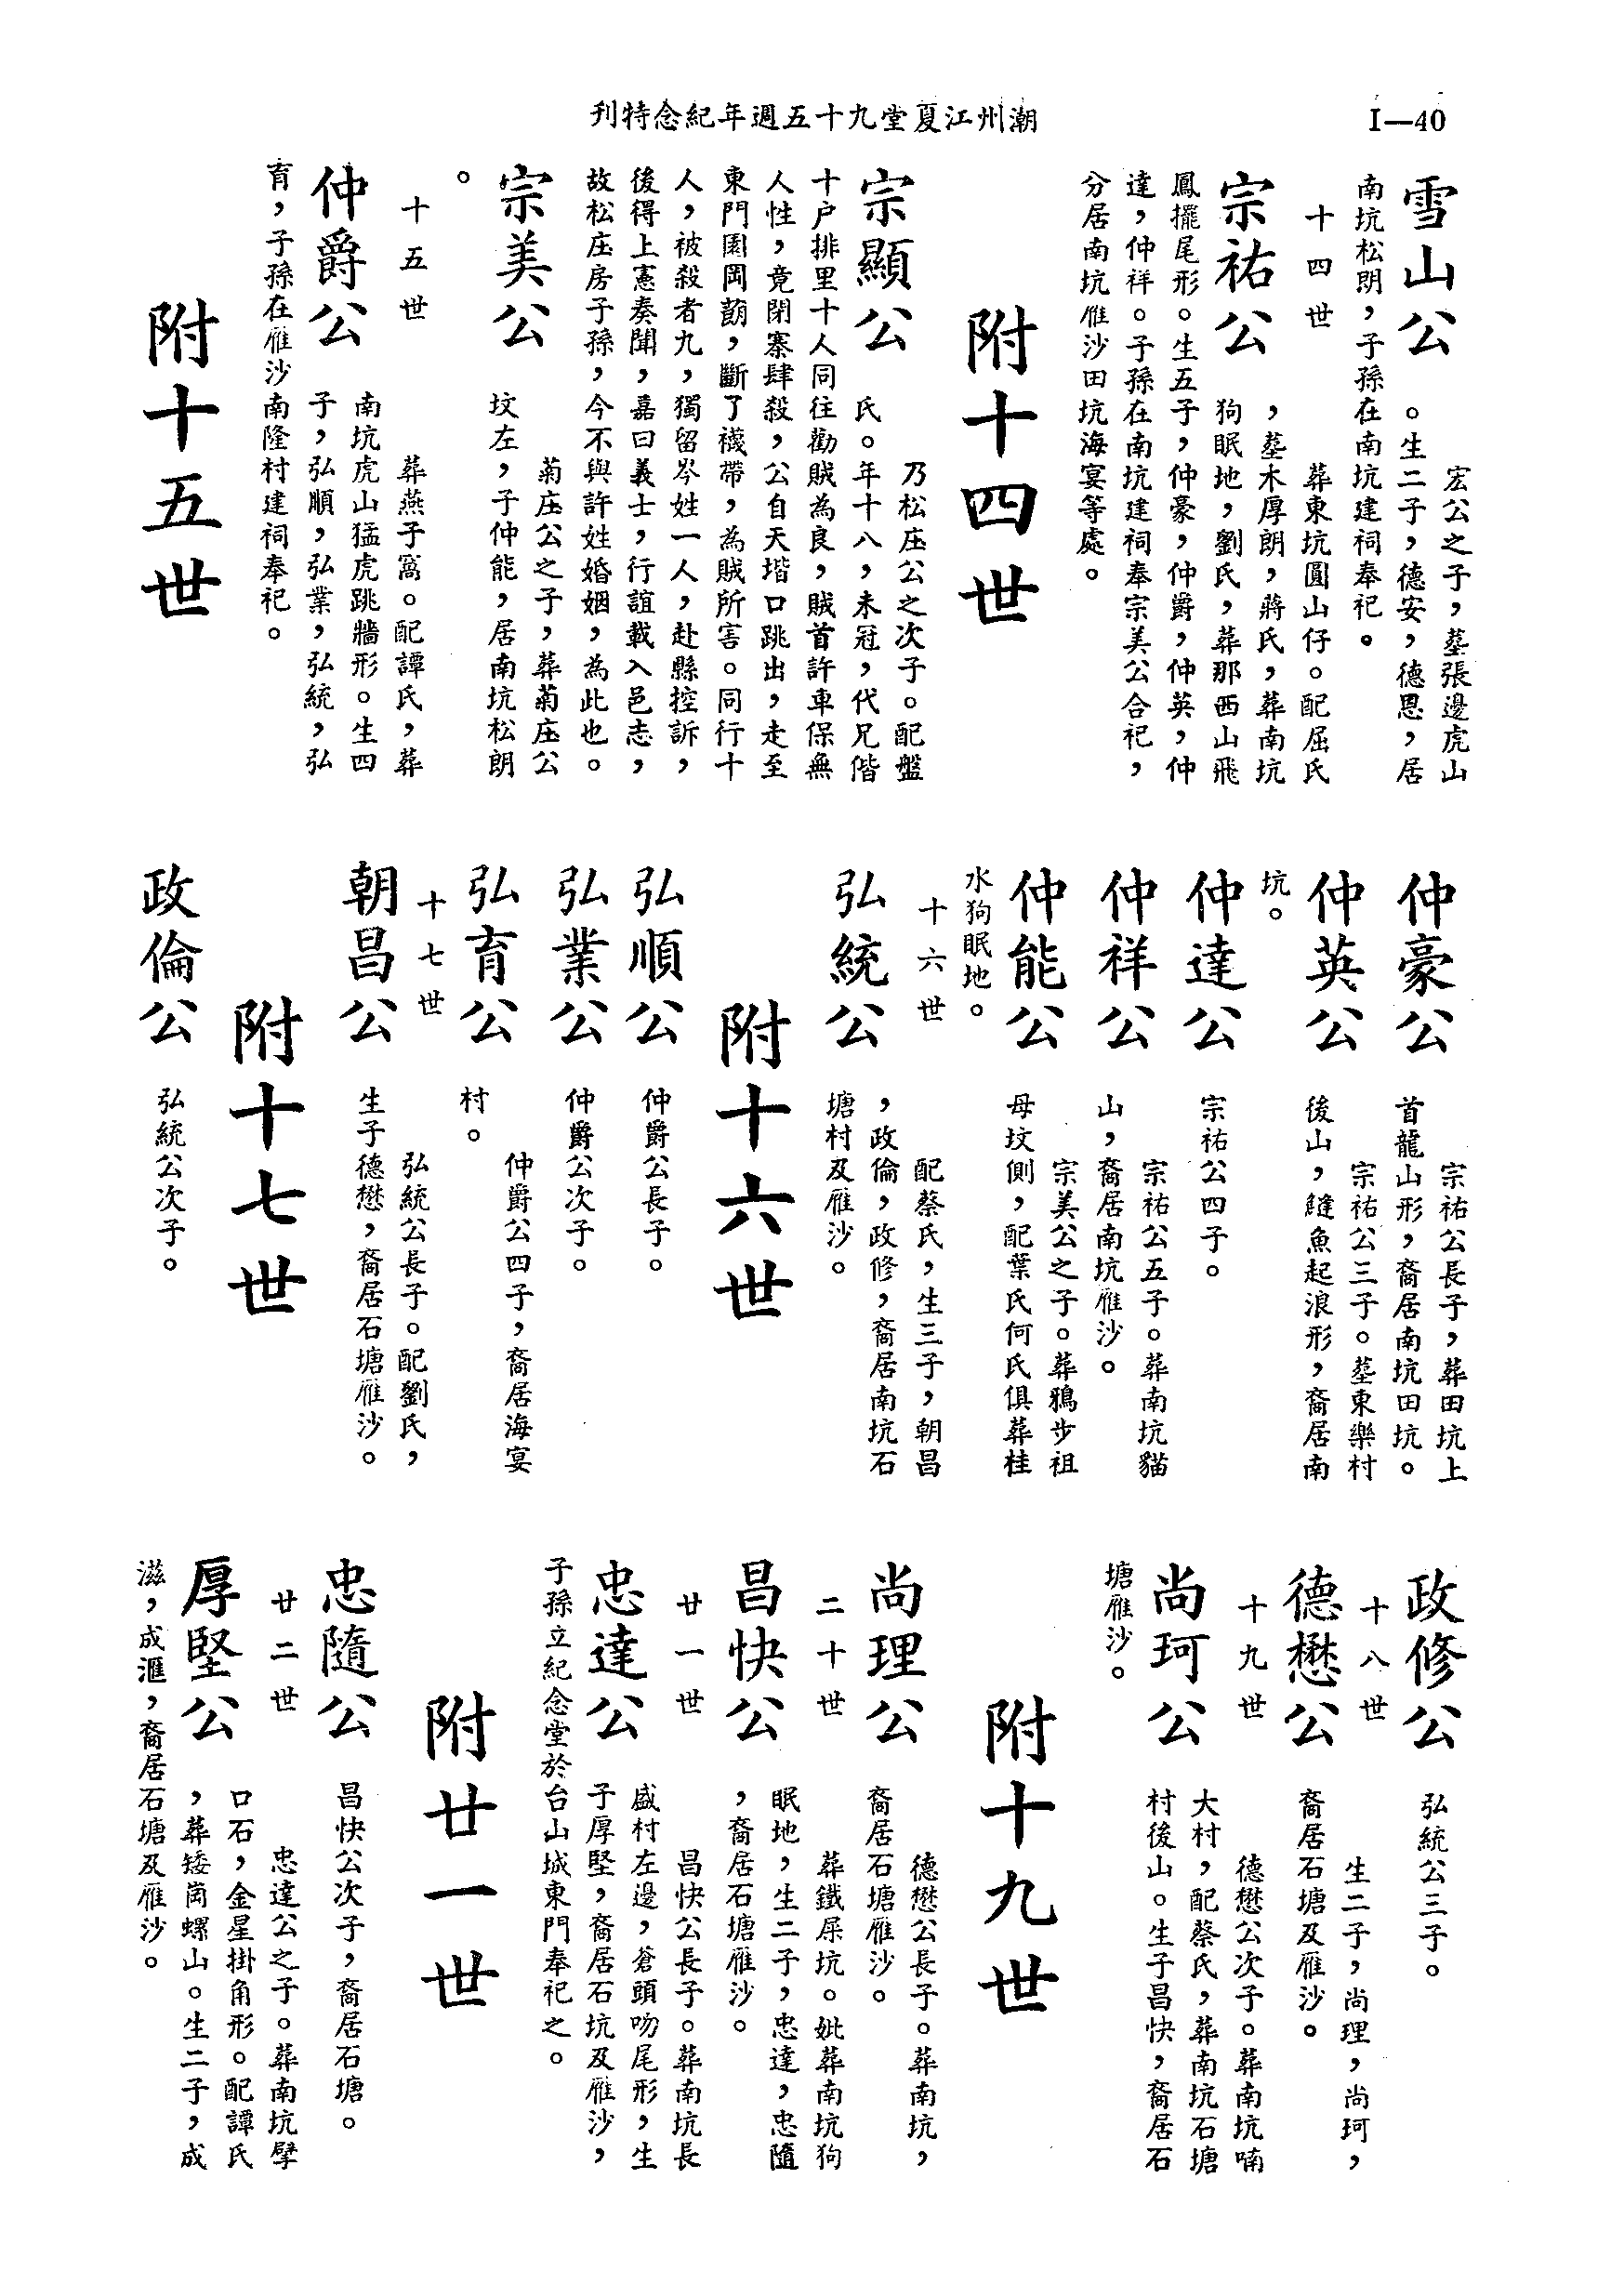 潮州江夏堂九十五週年紀念特刊
I—40
雪山公
宏公之子，墓張邊虎山
。生二子，德安，德恩，居
南坑松朗，子孫在南坑建祠奉祀。
十四世
宗祐公
葬東坑圓山仔。配屈氏
，墓木厚朗，蔣氏，葬南坑
狗眠地，劉氏，葬那西山飛
鳳擺尾形。生五子，仲豪，仲爵，仲英，仲
達，仲祥。子孫在南坑建祠奉宗美公合祀，
分居南坑雁沙田坑海宴等處。
附十四世
宗顯公
乃松庄公之次子。配盤
氏。年十八，未冠，代兄偕
十户排里十人同往勸賊為良，賊首許車保無
人性，竟閉寨肆殺，公自天堦口跳出，走至
東門園岡䓪，斷了襪帶，為賊所害。同行十
人，被殺者九，獨留岑姓一人，赴縣控訴，
後得上憲奏聞，嘉曰義士，行誼載入邑志，
故松庄房子孫，今不與許姓婚姻，為此也。
宗美公
菊庄公之子，葬菊庄公
坟左，子仲能，居南坑松朗
。
十五世
仲爵公
葬燕子窩。配譚氏，葬
南坑虎山猛虎跳牆形。生四
子，弘順，弘業，弘統，弘
育，子孫在雁沙南隆村建祠奉祀。
附十五世
仲豪公
宗祐公長子，葬田坑上
首龍山形，裔居南坑田坑。
仲英公
宗祐公三子。墓東樂村
後山，鰱魚起浪形，裔居南
坑。
仲達公
宗祐公四子。
仲祥公
宗祐公五子。葬南坑貓
山，裔居南坑雁沙。
仲能公
宗美公之子。葬鴉步祖
母坟側，配葉氏何氏俱葬桂
水狗眠地。
十六世
弘統公
配蔡氏，生三子，朝昌
，政倫，政修，裔居南坑石
塘村及雁沙。
附十六世
弘順公
仲爵公長子。
弘業公
仲爵公次子。
弘育公
仲爵公四子，裔居海宴
村。
十七世
朝昌公
弘統公長子。配劉氏，
生子德懋，裔居石塘雁沙。
附十七世
政倫公
弘統公次子。
政修公
弘統公三子。
十八世
德懋公
生二子，尚理，尚珂，
裔居石塘及雁沙。
十九世
尚珂公
德懋公次子。葬南坑喃
大村，配蔡氏，葬南坑石塘
村後山。生子昌快，裔居石
塘雁沙。
附十九世
尚理公
德懋公長子。葬南坑，
裔居石塘雁沙。
二十世
昌快公
葬鐵屎坑。妣葬南坑狗
眠地，生二子，忠達，忠隨
，裔居石塘雁沙。
廿一世
忠達公
昌快公長子。葬南坑長
盛村左邊，蒼頭吻尾形，生
子厚堅，裔居石坑及雁沙，
子孫立紀念堂於台山城東門奉祀之。
附廿一世
忠隨公
昌快公次子，裔居石塘。
廿二世
厚堅公
忠達公之子。葬南坑擘
口石，金星掛角形。配譚氏
，葬矮崗螺山。生二子，成
滋，成滙，裔居石塘及雁沙。